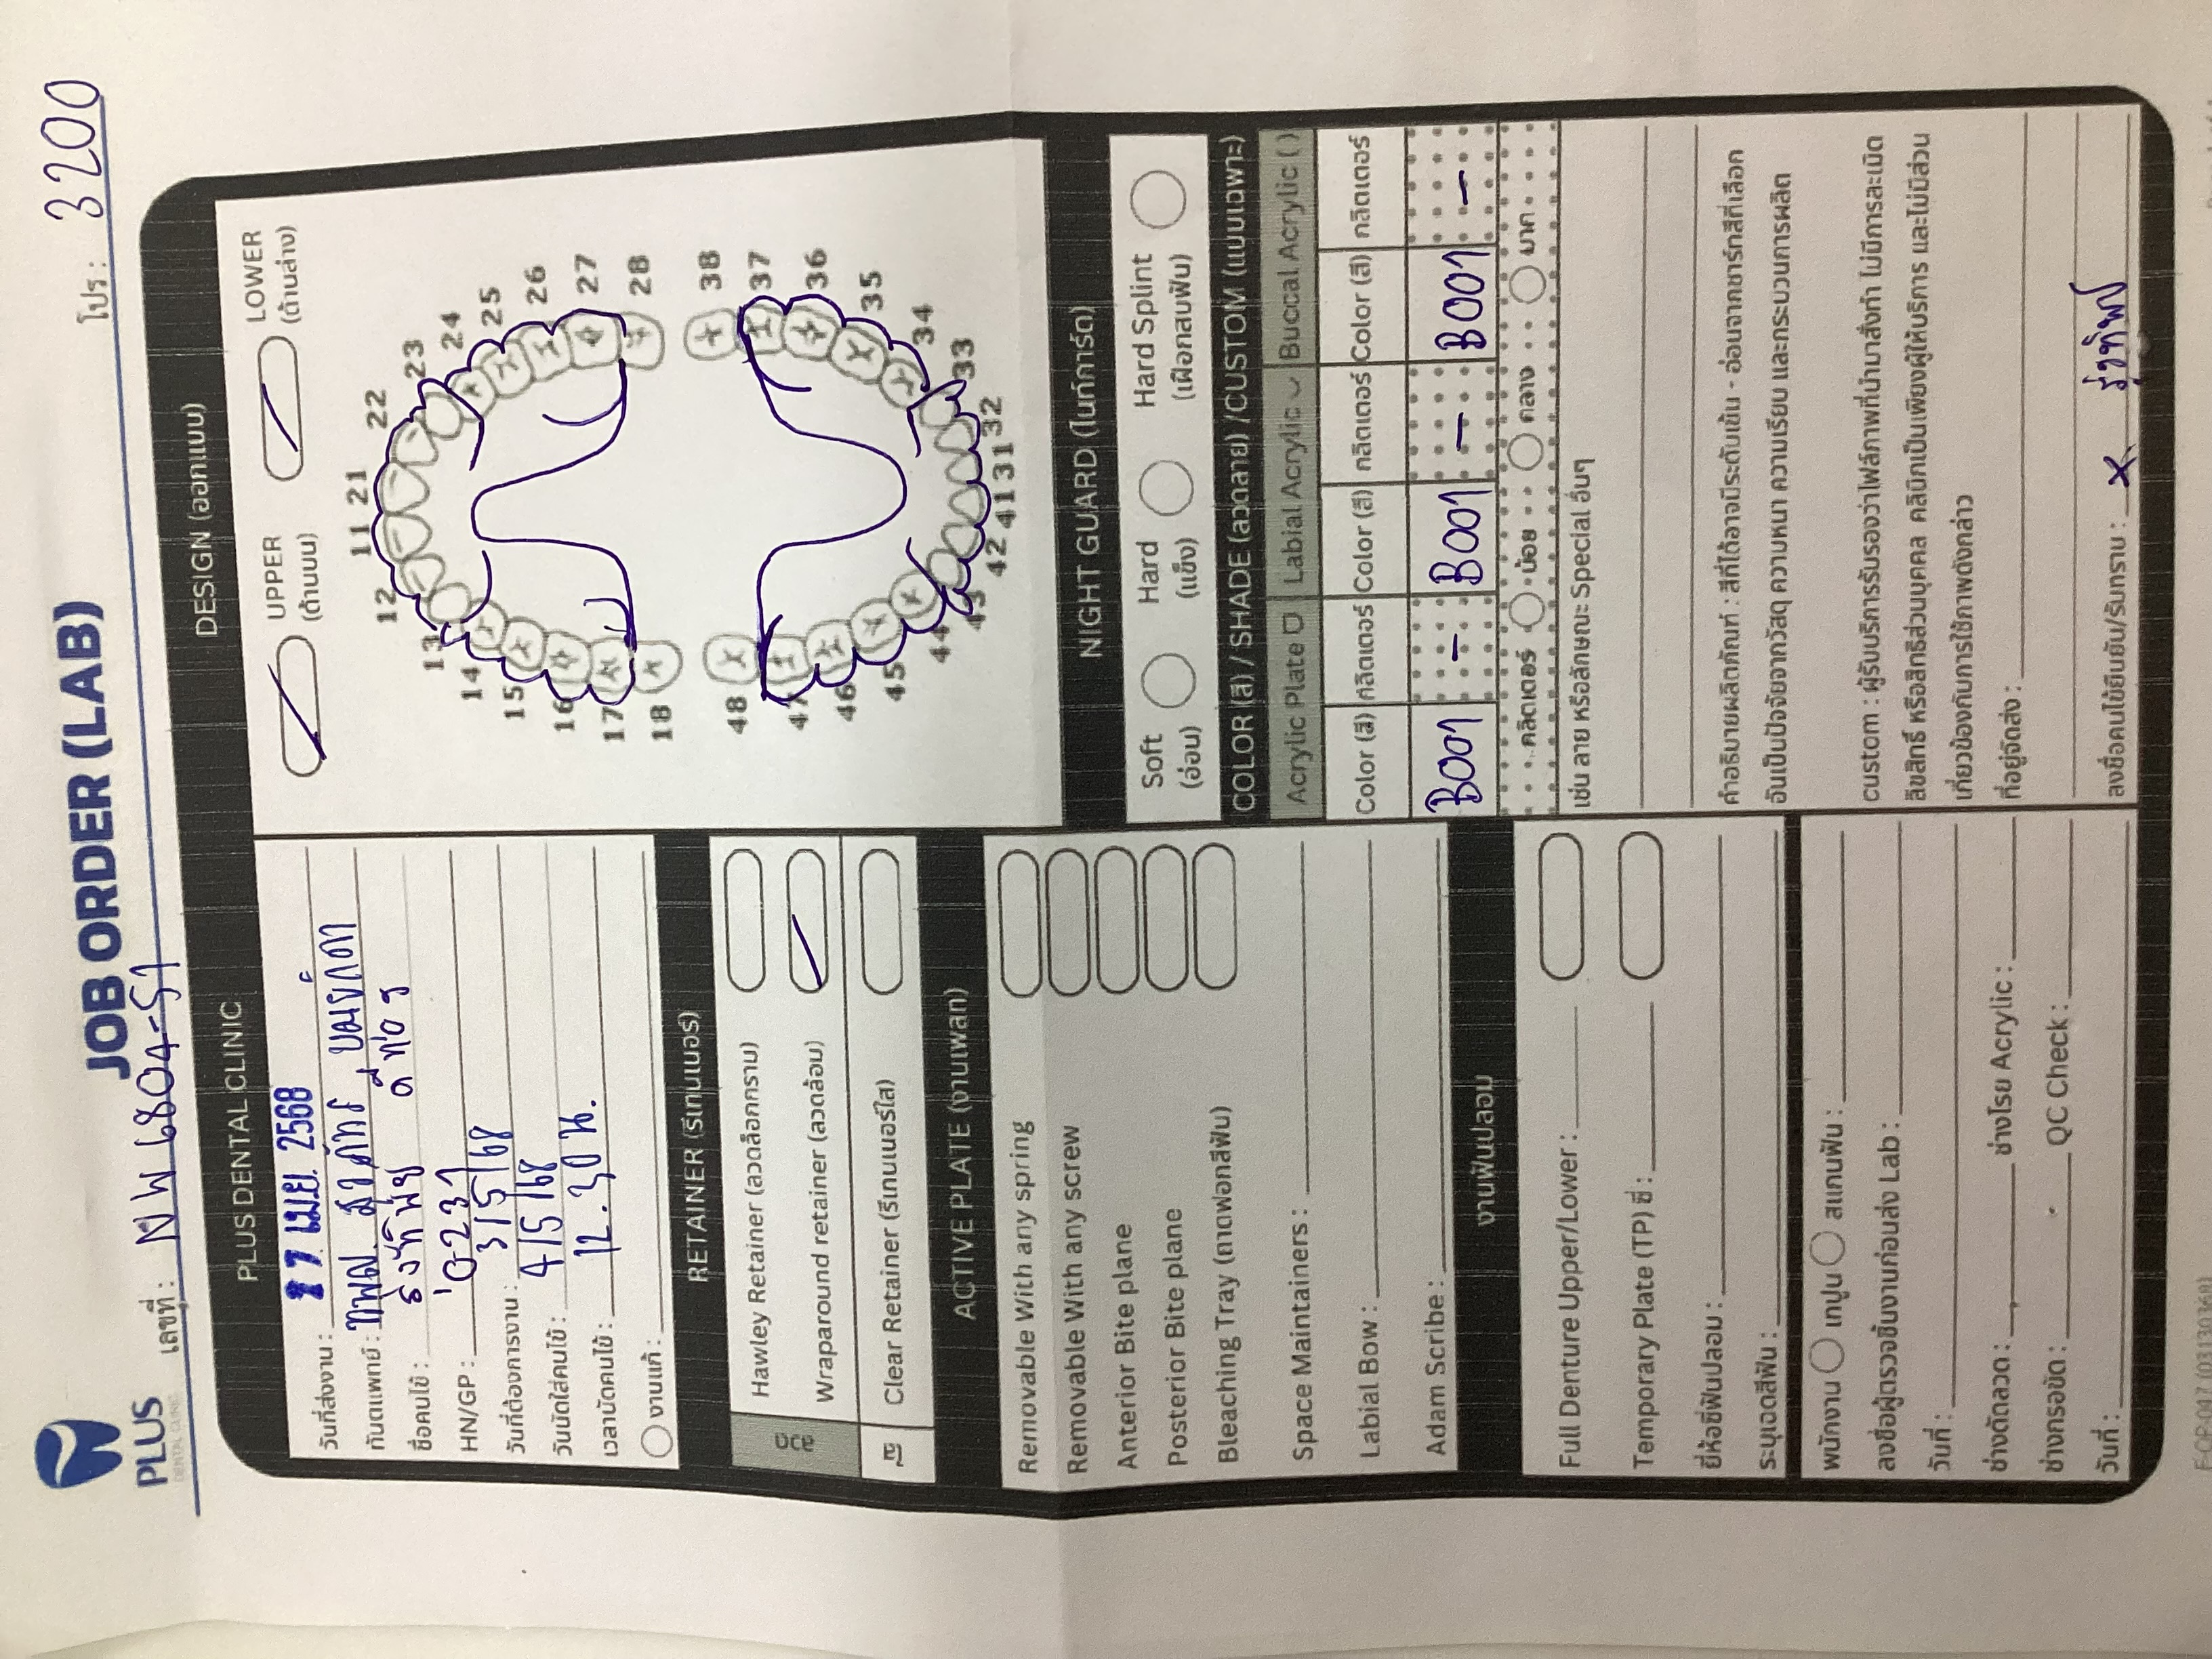 PLUS
DENTAL CLINIC
JOB ORDER (LAB)
โปร : 3200
เลขที่ : NW 6804-51
PLUS DENTAL CLINIC
วันที่ส่งงาน : 27 เม.ย. 2568
ทันตแพทย์ : ทพญ.
ชื่อคนไข้ : รุ่งทิพย์
HN/GP : 0231
วันที่ต้องการงาน : 3/5/68
วันนัดใส่คนไข้ : 4/5/68
เวลานัดคนไข้ : 12.30 น.
งานแก้ :
RETAINER (รีเทนเนอร์)
ลวด
Hawley Retainer (ลวดล็อกกราม)
Wraparound retainer (ลวดล้อม)
ใส
Clear Retainer (รีเทนเนอร์ใส)
ACTIVE PLATE (งานเพลท)
Removable With any spring
Removable With any screw
Anterior Bite plane
Posterior Bite plane
Bleaching Tray (ถาดฟอกสีฟัน)
Space Maintainers :
Labial Bow :
Adam Scribe :
งานฟันปลอม
Full Denture Upper/Lower :
Temporary Plate (TP) ซี่ :
ยี่ห้อซี่ฟันปลอม :
ระบุเฉดสีฟัน :
พนักงาน เทปูน สแกนฟัน :
ลงชื่อผู้ตรวจชิ้นงานก่อนส่ง Lab :
วันที่ :
ช่างดัดลวด : ช่างโรย Acrylic :
ช่างกรอขัด : QC Check :
วันที่ :
DESIGN (ออกแบบ)
UPPER
(ด้านบน)
LOWER
(ด้านล่าง)
11 21
12 22
13 23
14 24
15 25
16 26
17 27
18 28
48 38
47 37
46 36
45 35
44 34
43 33
42 41 31 32
NIGHT GUARD (ไนท์การ์ด)
Soft
(อ่อน)
Hard
(แข็ง)
Hard Splint
(เฝือกสบฟัน)
COLOR (สี) / SHADE (ลวดลาย) /CUSTOM (แบบเฉพาะ)
Acrylic Plate Labial Acrylic Buccal Acrylic ( )
Color (สี) กลิตเตอร์ Color (สี) กลิตเตอร์ Color (สี) กลิตเตอร์
B001 - B001 - B001 -
กลิตเตอร์ น้อย กลาง มาก
เช่น ลาย หรือลักษณะ Special อื่นๆ
คำอธิบายผลิตภัณฑ์ : สีที่ได้อาจมีระดับเข้ม - อ่อนจากชาร์ทสีที่เลือก
อันเป็นปัจจัยจากวัสดุ ความหนา ความเรียบ และกระบวนการผลิต
custom : ผู้รับบริการรับรองว่าไฟล์ภาพที่นำมาสั่งทำ ไม่มีการละเมิด
ลิขสิทธิ์ หรือสิทธิส่วนบุคคล คลินิกเป็นเพียงผู้ให้บริการ และไม่มีส่วน
เกี่ยวข้องกับการใช้ภาพดังกล่าว
ที่อยู่จัดส่ง :
ลงชื่อคนไข้ยืนยัน/รับทราบ : x รุ่งทิพย์